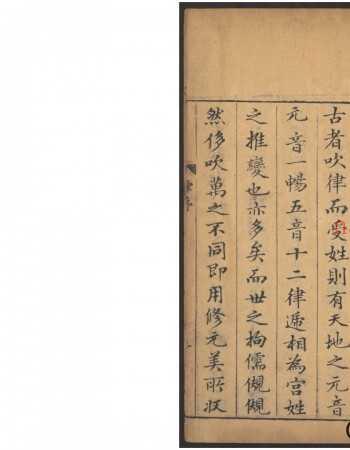 古者吹律而受姓則有天地之元音
元音一暢五音十二律遞相為宮姓
之推變也亦多矣而世之拘儒覼覼
然侈吹萬之不同即用修元美所狀